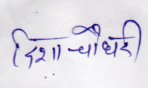 दिशा चौधरी